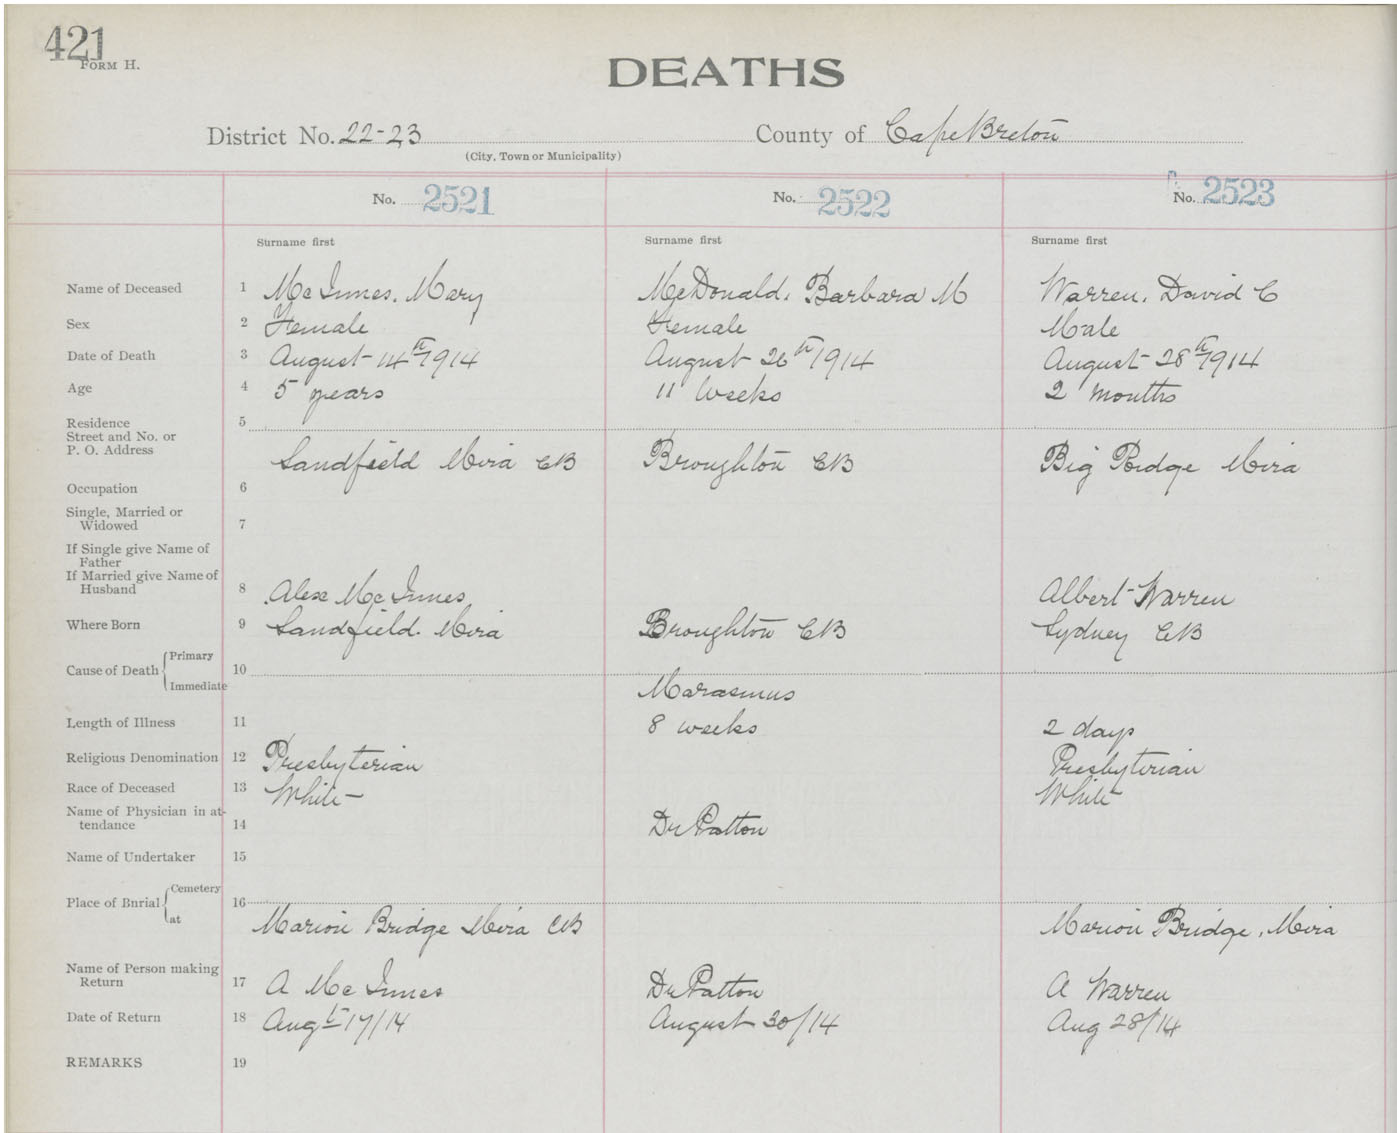 421
FORM H.
DEATHS
District No. 22-23 County of Cape Breton
(City, Town or Municipality)
No. 2521 No. 2522 No. 2523
Surname first Surname first Surname first
Name of Deceased 1 McInnes, Mary McDonald, Barbara M Warren, David C
Sex 2 Female Female Male
Date of Death 3 August 14th 1914 August 26th 1914 August 28th 1914
Age 4 5 years 11 Weeks 2 months
Residence 5
Street and No. or
P. O. Address Sandfield Mira CB Broughton CB Big Ridge Mira
Occupation 6
Single, Married or
Widowed 7
If Single give Name of
Father
If Married give Name of
Husband 8 Alex McInnes Albert Warren
Where Born 9 Sandfield Mira Broughton CB Sydney CB
Primary
Cause of Death 10
Immediate Marasmus
Length of Illness 11 8 weeks 2 days
Religious Denomination 12 Presbyterian Presbyterian
Race of Deceased 13 White White
Name of Physician in at-
tendance 14 Dr Patton
Name of Undertaker 15
Cemetery
Place of Burial 16
at Marion Bridge Mira CB Marion Bridge, Mira
Name of Person making
Return 17 A McInnes Dr Patton A Warren
Date of Return 18 Augt 17/14 August 30/14 Aug 28/14
REMARKS 19